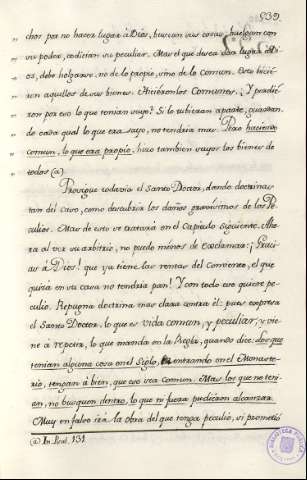 539.
" chos por no hacer lugar á Dios, buscan sus cosas, huelgan con
" su poder, codician su peculiar. Mas el que desea dar lugar á Di-
" os, debe holgarse, no de lo propio, sino de lo comun. Esto hicié-
" ron aquellos de sus bienes. Hiciéronlos Comunes. ¿Y perdié-
" ron por eso lo que tenian suyo? Si lo tubieran aparte, quando
" cada qual lo que era suyo, no tendria mas. Pero haciendo
" comun, lo que era propio, hizo tambien suyos los bienes de
" todos (a).
Prosigue todavia el Santo Doctor, dando doctrinas
tan del caso, como descubrir los daños gravísimos de los Pe-
culios. Mas de esto se tratará en el Capítulo siguiente. Aho-
ra al ver su arbitrio, no puedo ménos de exclamar: ¡Graci-
as á Dios! que ya tiene las rentas del Convento, el que
quizá en su casa no tendria pan! Y con todo eso quiere pe-
culio. Repugna doctrina mas clara contra él: pues expresa
el Santo Doctor, lo que es vida comun, y peculiar; y vie-
ne á repetir, lo que manda en la Regla, quando dice: los que
tenian alguna cosa en el Siglo, entrando en el Monaste-
rio, tengan á bien, que eso sea comun. Mas los que no tení-
an, no busquen dentro, lo que ni fuera pudiéron alcanzar.
Muy en falso irá la obra del que tenga peculio, si prometió
(a) In Psal. 131.
BIBLIOTECA PUBLICA